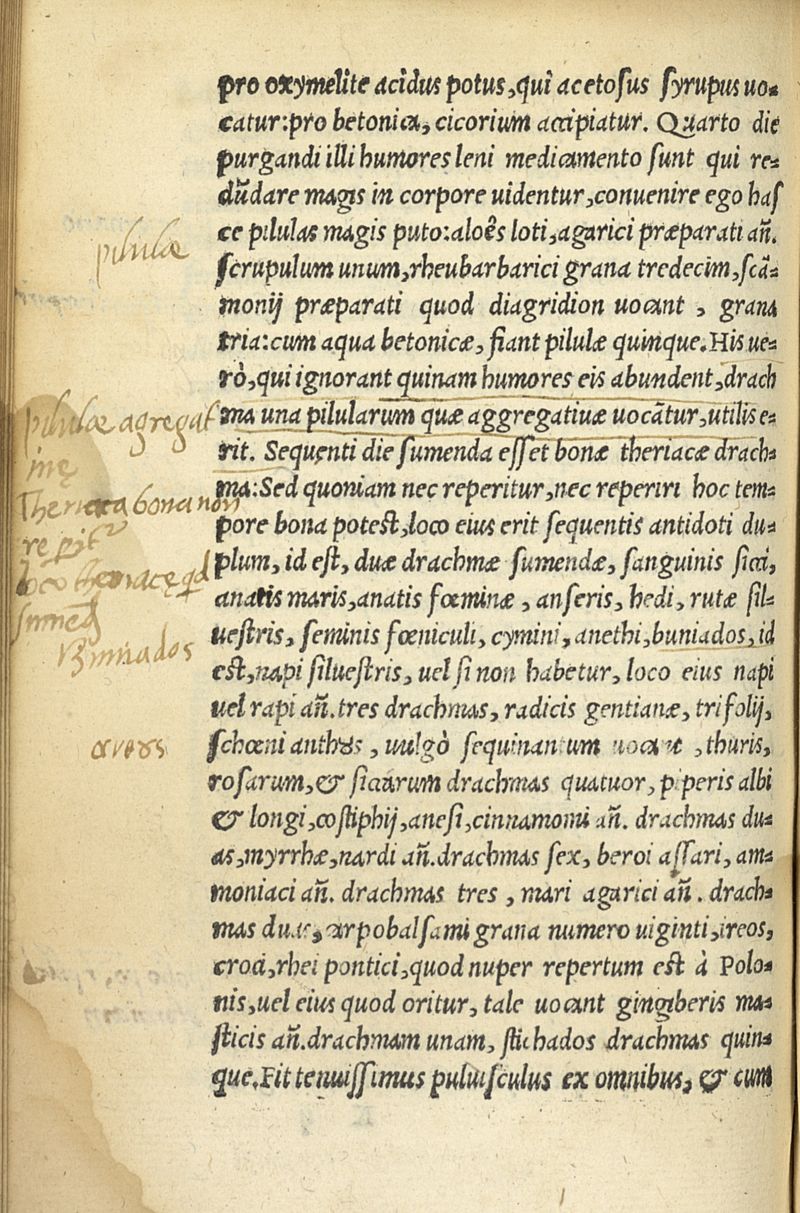 pro oxymelite acidus potus, qui acetosus syrupus uo-
catur: pro betonica, cicorium accipiatur. Quarto die
purgandi illi humores leni medicamento sunt qui re-
dũdare magis in corpore uidentur, conuenire ego has
ce pilulas magis puto: aloês loti, agarici præparati añ.
scrupulum unum, rheubarbarici grana tredecim, scã-
monij præparati quod diagridion uocant, grana
tria: cum aqua betonicæ, fiant pilulæ quinque. His ue-
rò, qui ignorant quinam humores eis abundent, drach
ma una pilularum quæ aggregatiuæ uocãtur, utilis e-
rit. Sequenti die sumenda esset bonæ theriacæ drach-
ma: Sed quoniam nec reperitur, nec reperiri hoc tem-
pore bona potest, loco eius erit sequentis antidoti du-
plum, id est, duæ drachmæ sumendæ, sanguinis sicci,
anatis maris, anatis fœminæ, anseris, hedi, rutæ sil-
uestris, seminis fœniculi, cymini, anethi, buniados, id
est, napi siluestris, uel si non habetur, loco eius napi
uel rapi añ. tres drachmas, radicis gentianæ, trifolij,
schœni anthus, uulgò sequinantum uocant, thuris,
rosarum, & siccarum drachmas quatuor, piperis albi
& longi, costiphij, anesi, cinnamomi añ. drachmas du-
as, myrrhæ, nardi añ. drachmas sex, beroi assari, am-
moniaci añ. drachmas tres, mari agarici añ. drach-
mas duas, carpobalsami grana numero uiginti, ireos,
croci, rhei pontici, quod nuper repertum est à Polo-
nis, uel eius quod oritur, tale uocant gingiberis ma-
sticis añ. drachmam unam, stichados drachmas quin-
que. Fit tenuissimus puluisculus ex omnibus, & cum
pilulæ
pilulæ agregat
inę
Theriaca bona non
loco
Buniados